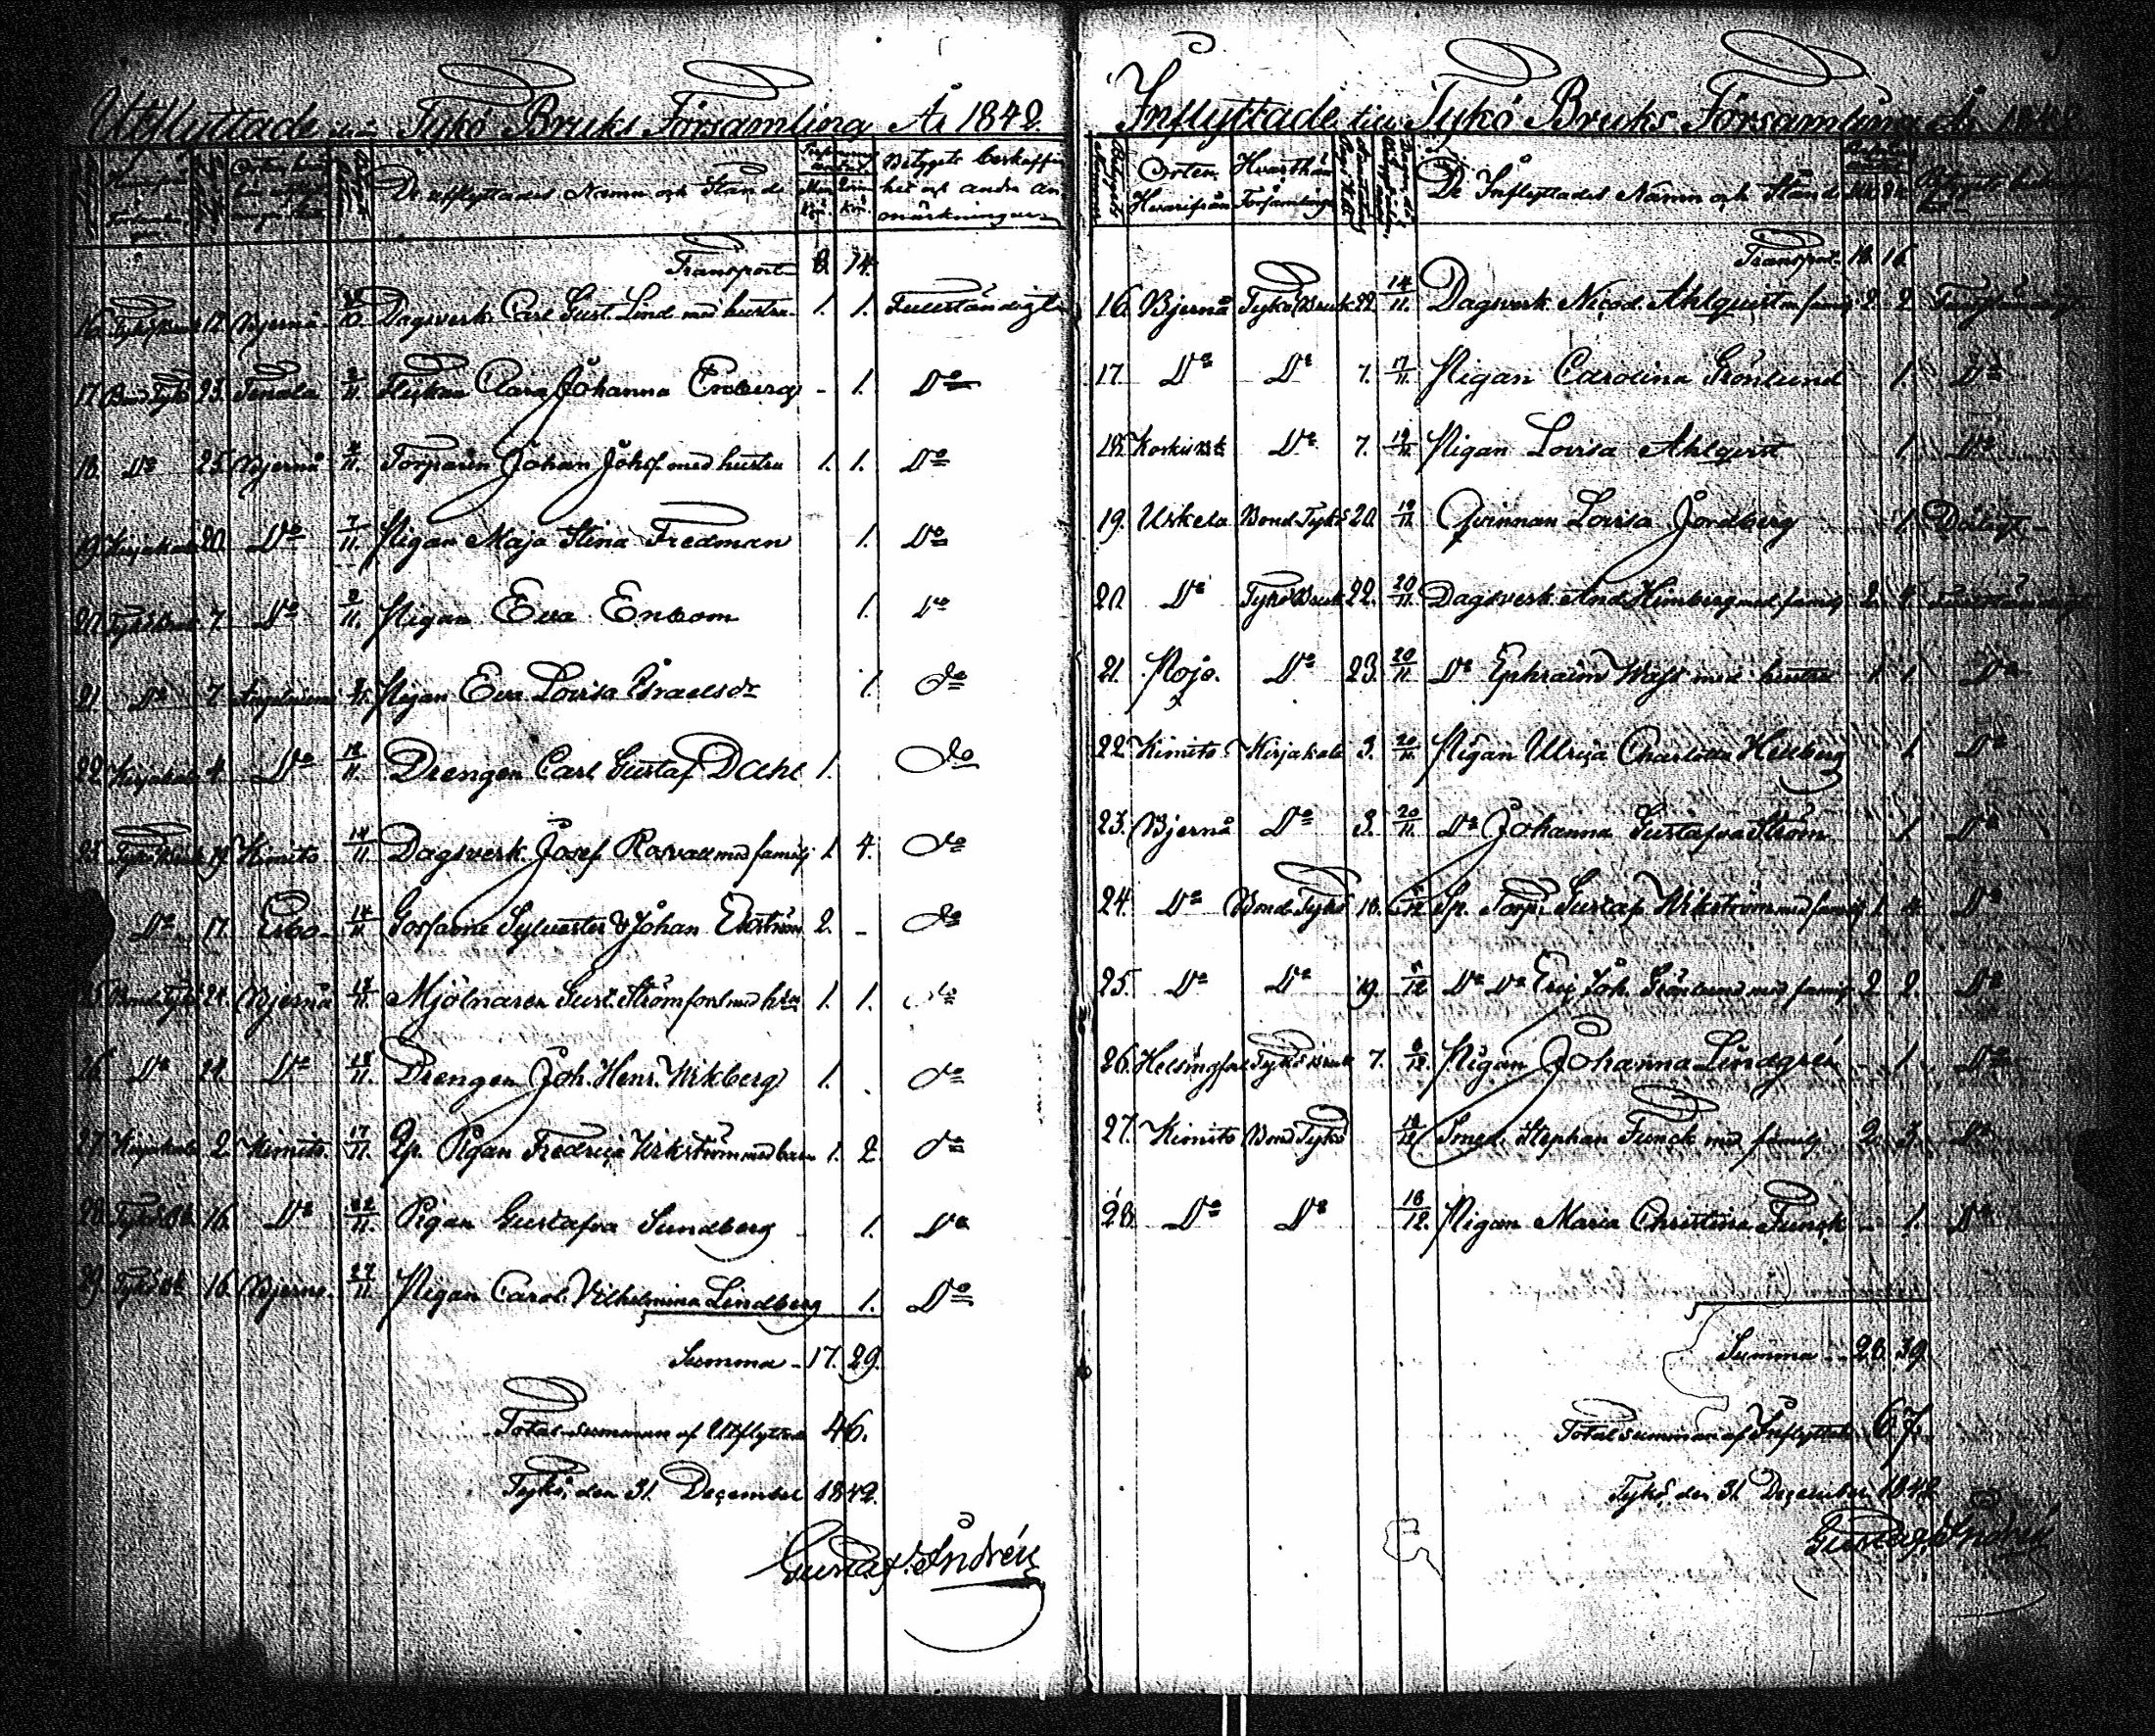 Utflyttade från Tykö Bruks Församling År 1842.
De utflyttades Namn och Stånd
Man Kön. Qvin Kön.
Betygets beskaffen
het och andra an
märkningar
Transport 8. 14.
16. Tykö Bruk 17. Bjernå Dagsverk. Carl Gust. Lind med hustru 1. 1. Fullständigt
17. Bond Tykö 23. Tenala 2/11. Flickan Clara Johanna - 1. Do
18. Do 25. Bjernå 4/11. Torparen Johan Johsf. med hustru 1. 1. Do
19. Kirjakala 20. Do 7/11. Pigan Maja Stina Fredman 1. Do
20. Tykö Bruk 7. Do 2/11. Pigan Eva Enbom 1. Do
21. Do 7. Pigan Eva Lovisa Israelsdr 1. do
22. Kirjakala 4. Do 12/11. Drengen Carl Gustaf Dahl 1. do
23. Tykö Bruk 19. Kimito 14/11 Dagsverk. Josef Rosvall med familj 1. 4. do
Do 17. Esbo 14/11. Gossarne Sylvester & Johan Ekström 2. - do
25. Bond Tykö 24. Bjernå Mjölnaren Gust. Strömfors med hru 1. 1. do
26. Do 24. Do 15/11. Drengen Joh. Henr. Wikberg 1. do
27. Kirjakala 2. Kimito. 17/11. Qp. Pigan Fredrica Wikström med barn 1. 2. do
28. Tykö Bk 16. Do 22/11. Pigan Gustafva Sundberg 1. Do
29. Tykö Bk 16. Bjerno. 27/11 Pigan Carol. Vilhelmina Lindberg 1. Do
Summa - 17. 29.
Total-summan af Utflyttade 46.
Tykö, den 31. December 1842.
Gustaf Andrén
Inflyttade till Tykö Bruks Församling År 1842
Orten Hvarifrån
Hvarthän Församlinge
De Inflyttades Namn och Stånd
Transport. 16
16. Bjernå Tykö Bruk 22. 14/11. Dagsverk. Nicod. Ahlquist m familj 2. 2. Fullständigt
17. Do Do 7. 17/11. Pigan Carolina Grönlund 1. Do
18. Koskis Bk Do 7. 19/11. Pigan Lovisa Ahlqvist 1. Do
19. Uskela Bond Tykö 20. 19/11. Qvinnan Lovisa Jordberg 1. Dåligt
20. Do Tykö Bruk 22. 20/11. Dagsverk. And. Himberg med familj 2. 4. Fullständigt
21. Pojo. Do 23. 20/11 Do Ephraim med hustru 1. 1. Do
22. Kimito Kirjakala 3. 20/11. Pigan Ulrica Charlotta Hellberg 1. Do
23. Bjernå Do 3. 20/11. Do Johanna Gustafva Ström 1. Do
24. Do Bond Tykö 18. Sp. Torp. Gustaf Wikström med familj 1. 4. Do
25. Do Do 19. 5/12 Do Do Eric Joh. Grönlund med familj 2 2. Do
26. Helsingfors Tykö Bruk 7. Pigan Johanna Lindgrén - 1. Do
27. Kimito Bond Tykö Smed. Stephan Funck med familj 2. 3. Do
28. Do Do 18/12. Pigan Maria Christina Funck - 1. Do
Summa - 28. 39.
Total summan af Inflyttade 67.
Tykö, den 31 December 1842
Gustaf Andrén